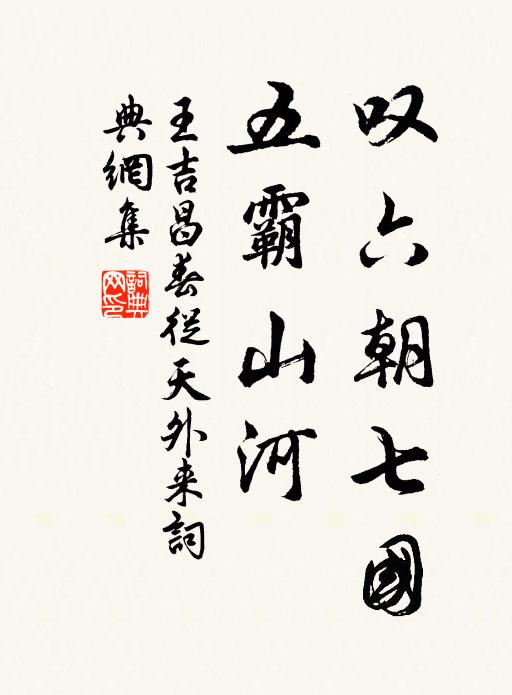 叹六朝七國
五霸山河
王吉昌春從天外来詞
典網集
詞典
网印